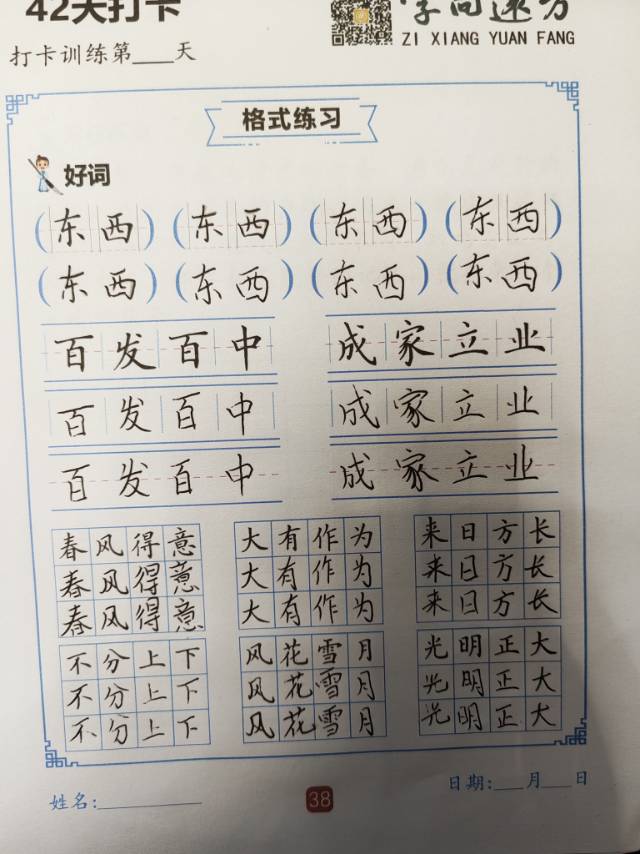 42天打卡
字向速方
ZI XIANG YUAN FANG
打卡训练第____天
格式练习
好词
(东西) (东西) (东西) (东西)
(东西) (东西) (东西) (东西)
百发百中 成家立业
百发百中 成家立业
百发百中 成家立业
春风得意 大有作为 来日方长
春风得意 大有作为 来日方长
春风得意 大有作为 来日方长
不分上下 风花雪月 光明正大
不分上下 风花雪月 光明正大
不分上下 风花雪月 光明正大
日期:___月___日
姓名:__________
38